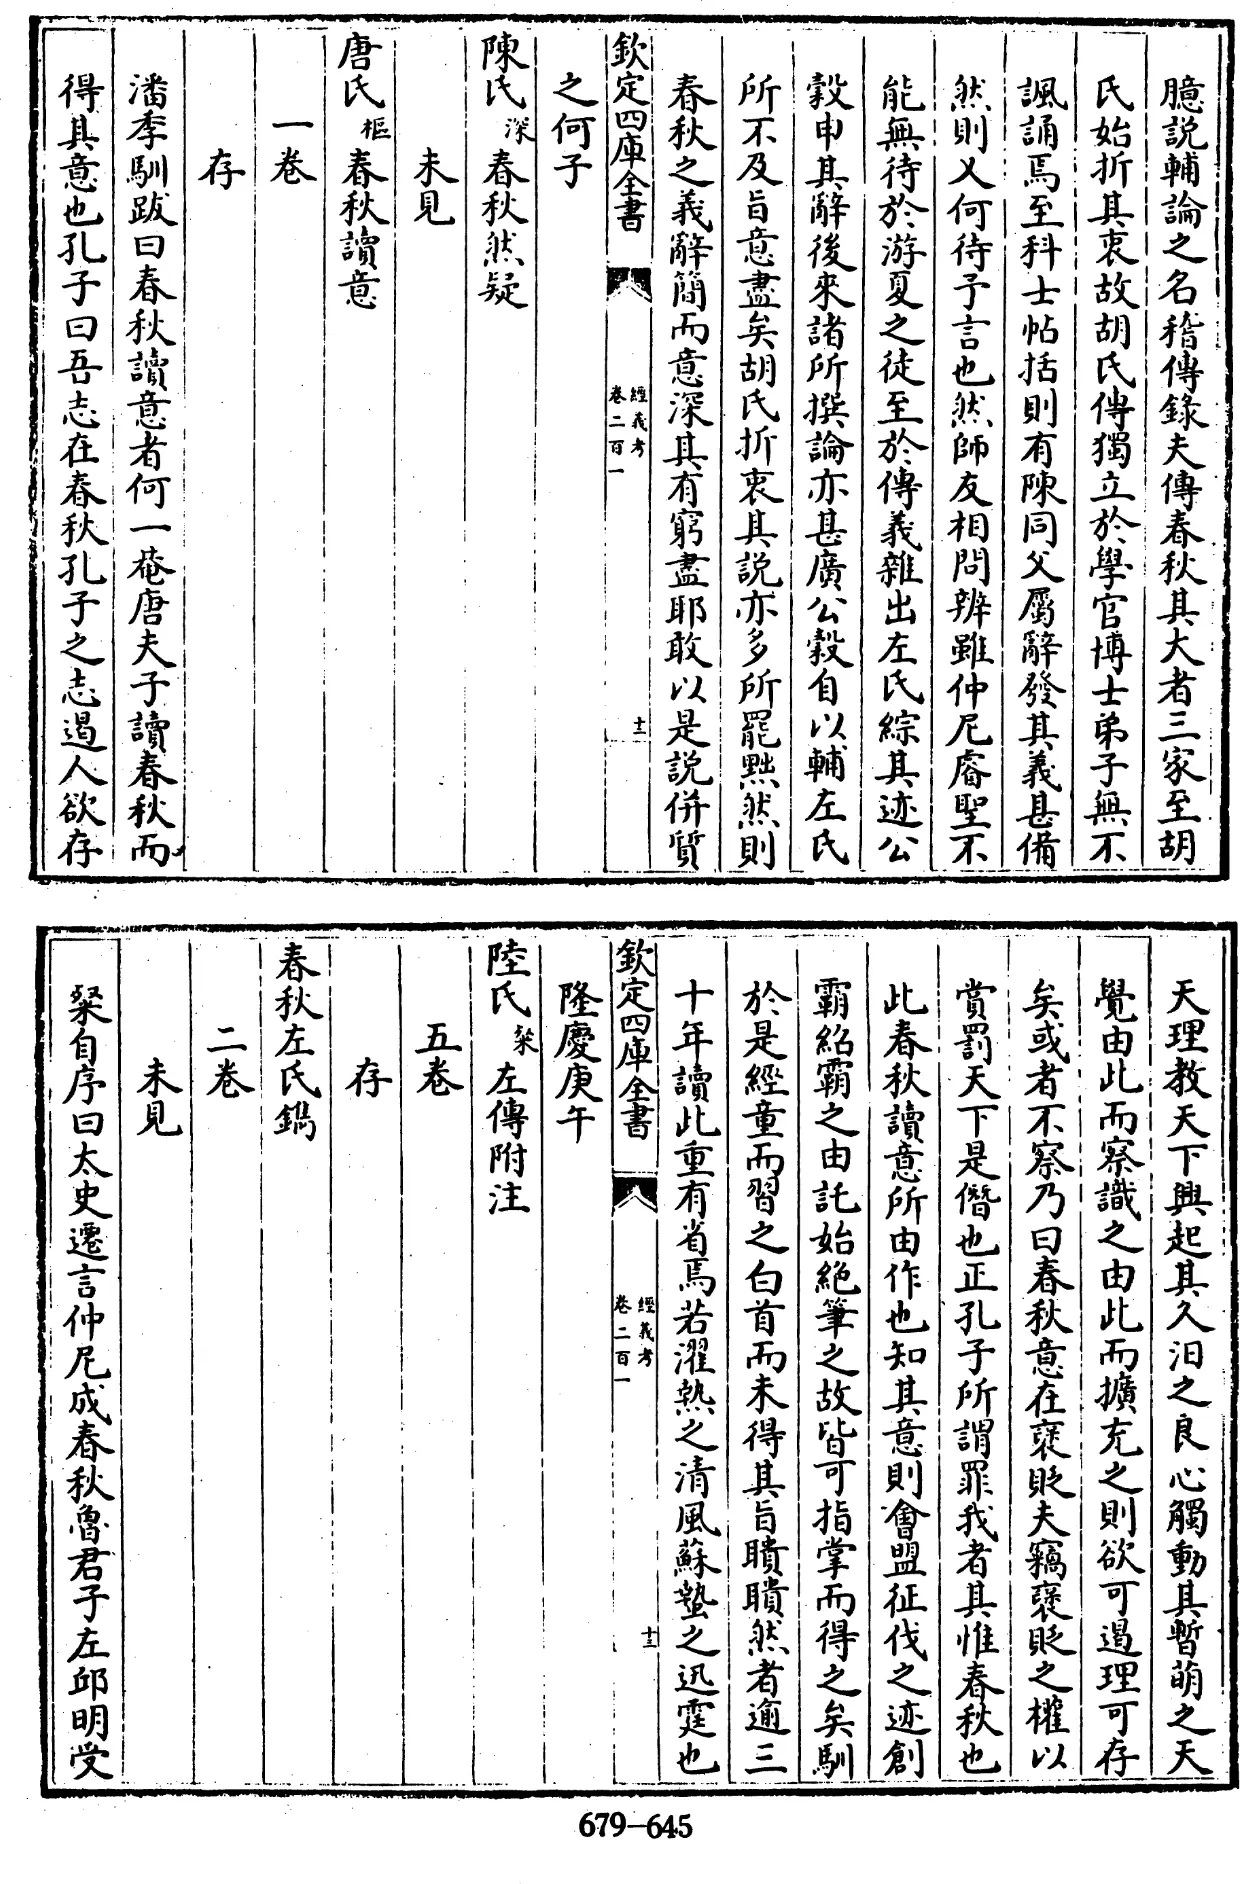 臆説輔論之名稽傳錄夫傳春秋其大者三家至胡
氏始折其衷故胡氏傳獨立於學官博士弟子無不
諷誦焉至科士帖括則有陳同父屬辭發其義甚備
然則又何待予言也然師友相問辨雖仲尼睿聖不
能無待於游夏之徒至於傳義雜出左氏綜其迹公
穀申其辭後來諸所撰論亦甚廣公穀自以輔左氏
所不及旨意盡矣胡氏折衷其説亦多所罷黜然則
春秋之義辭簡而意深其有窮盡耶敢以是説併質
欽定四庫全書 經義考卷二百一 十二
之何子
陳氏深春秋然疑
未見
唐氏樞春秋讀意
一卷
存
潘季馴跋曰春秋讀意者何一菴唐夫子讀春秋而
得其意也孔子曰吾志在春秋孔子之志遏人欲存
天理教天下興起其久汨之良心觸動其暫萌之天
覺由此而察識之由此而擴充之則欲可遏理可存
矣或者不察乃曰春秋意在褒貶夫竊褒貶之權以
賞罰天下是僭也正孔子所謂罪我者其惟春秋也
此春秋讀意所由作也知其意則會盟征伐之迹創
霸紹霸之由託始絶筆之故皆可指掌而得之矣馴
於是經童而習之白首而未得其旨聵聵然者逾三
十年讀此重有省焉若濯熱之清風蘇蟄之迅霆也
欽定四庫全書 經義考卷二百一 十三
隆慶庚午
陸氏粲左傳附注
五卷
存
春秋左氏鐫
二卷
未見
粲自序曰太史遷言仲尼成春秋魯君子左邱明受
679-645